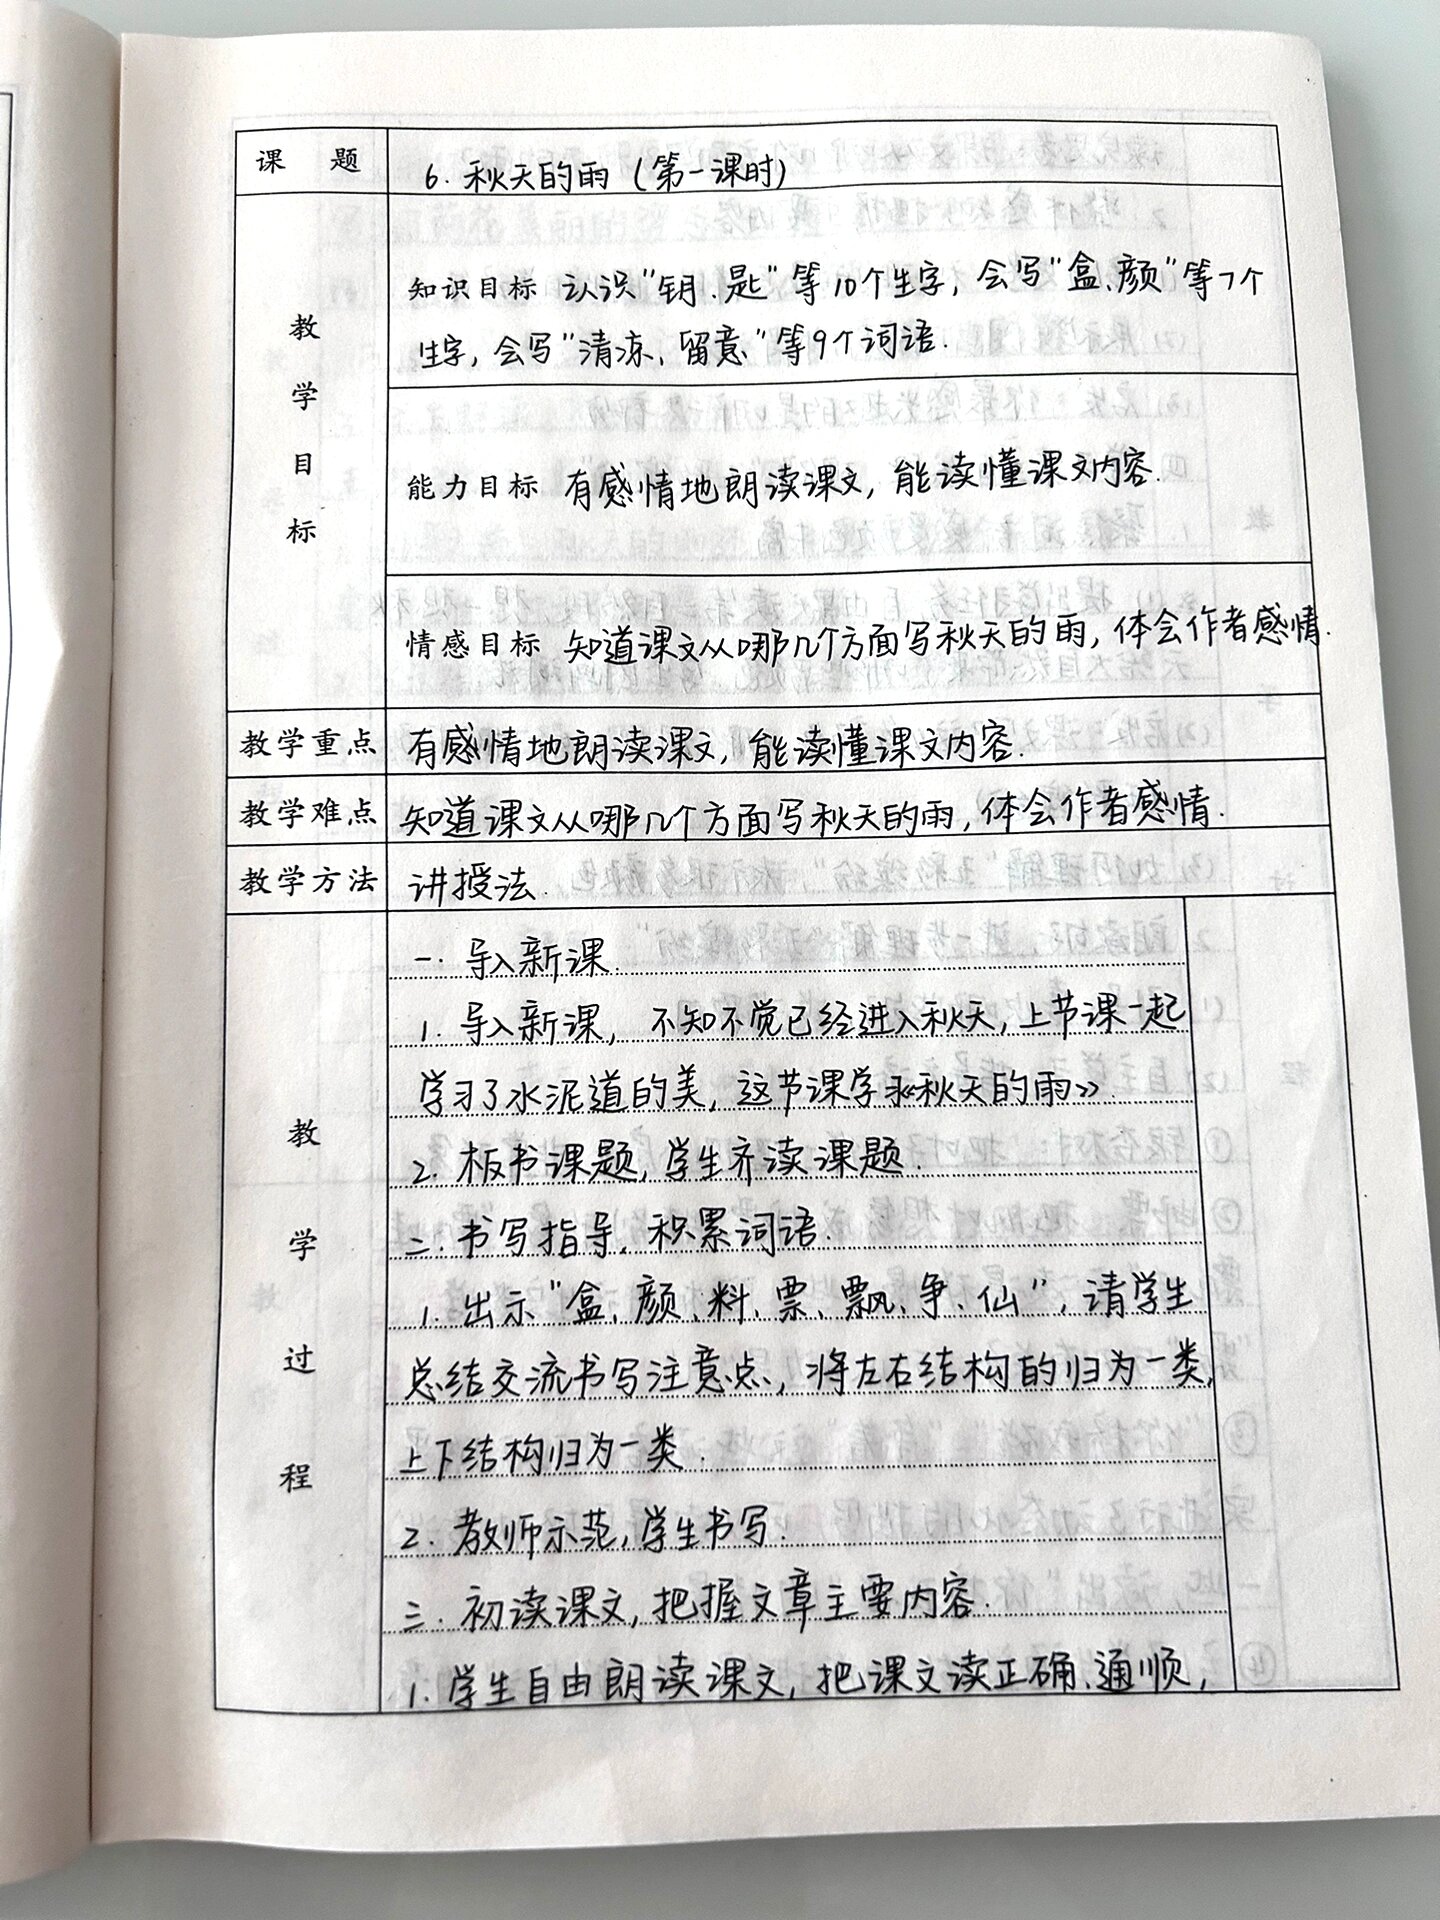 课 题 6. 秋天的雨（第一课时）
教学目标
知识目标 认识“钥、匙”等10个生字，会写“盒、颜”等7个
生字，会写“清凉、留意”等9个词语.
能力目标 有感情地朗读课文，能读懂课文内容.
情感目标 知道课文从哪几个方面写秋天的雨，体会作者感情.
教学重点 有感情地朗读课文，能读懂课文内容.
教学难点 知道课文从哪几个方面写秋天的雨，体会作者感情.
教学方法 讲授法.
教学过程
一. 导入新课.
1. 导入新课，不知不觉已经进入秋天，上节课一起
学习了水泥道的美，这节课学习《秋天的雨》.
2. 板书课题，学生齐读课题.
二. 书写指导，积累词语.
1. 出示“盒、颜、料、票、飘、争、仙”，请学生
总结交流书写注意点，将左右结构的归为一类，
上下结构归为一类.
2. 教师示范，学生书写.
三. 初读课文，把握文章主要内容.
1. 学生自由朗读课文，把课文读正确、通顺，